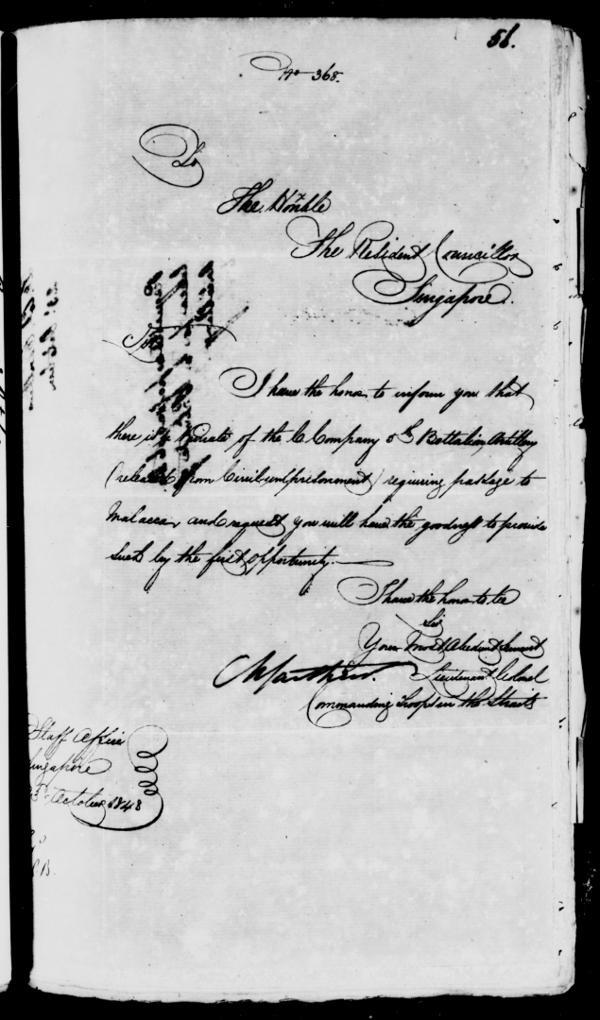 56.
No 368.
To
The Honble
The Resident Councillor
Singapore.
Sir
I have the honor to inform you that
there is a Private of the C Company 5th Battalion Artillery
(released from Civil imprisonment) requiring passage to
Malacca, and request you will have the goodness to provide
such by the first opportunity.
I have the honor to be
Sir
Your most obedient Servant
Lieutenant Colonel
Commanding Troops in the Straits
Staff Office
Singapore
October 1848